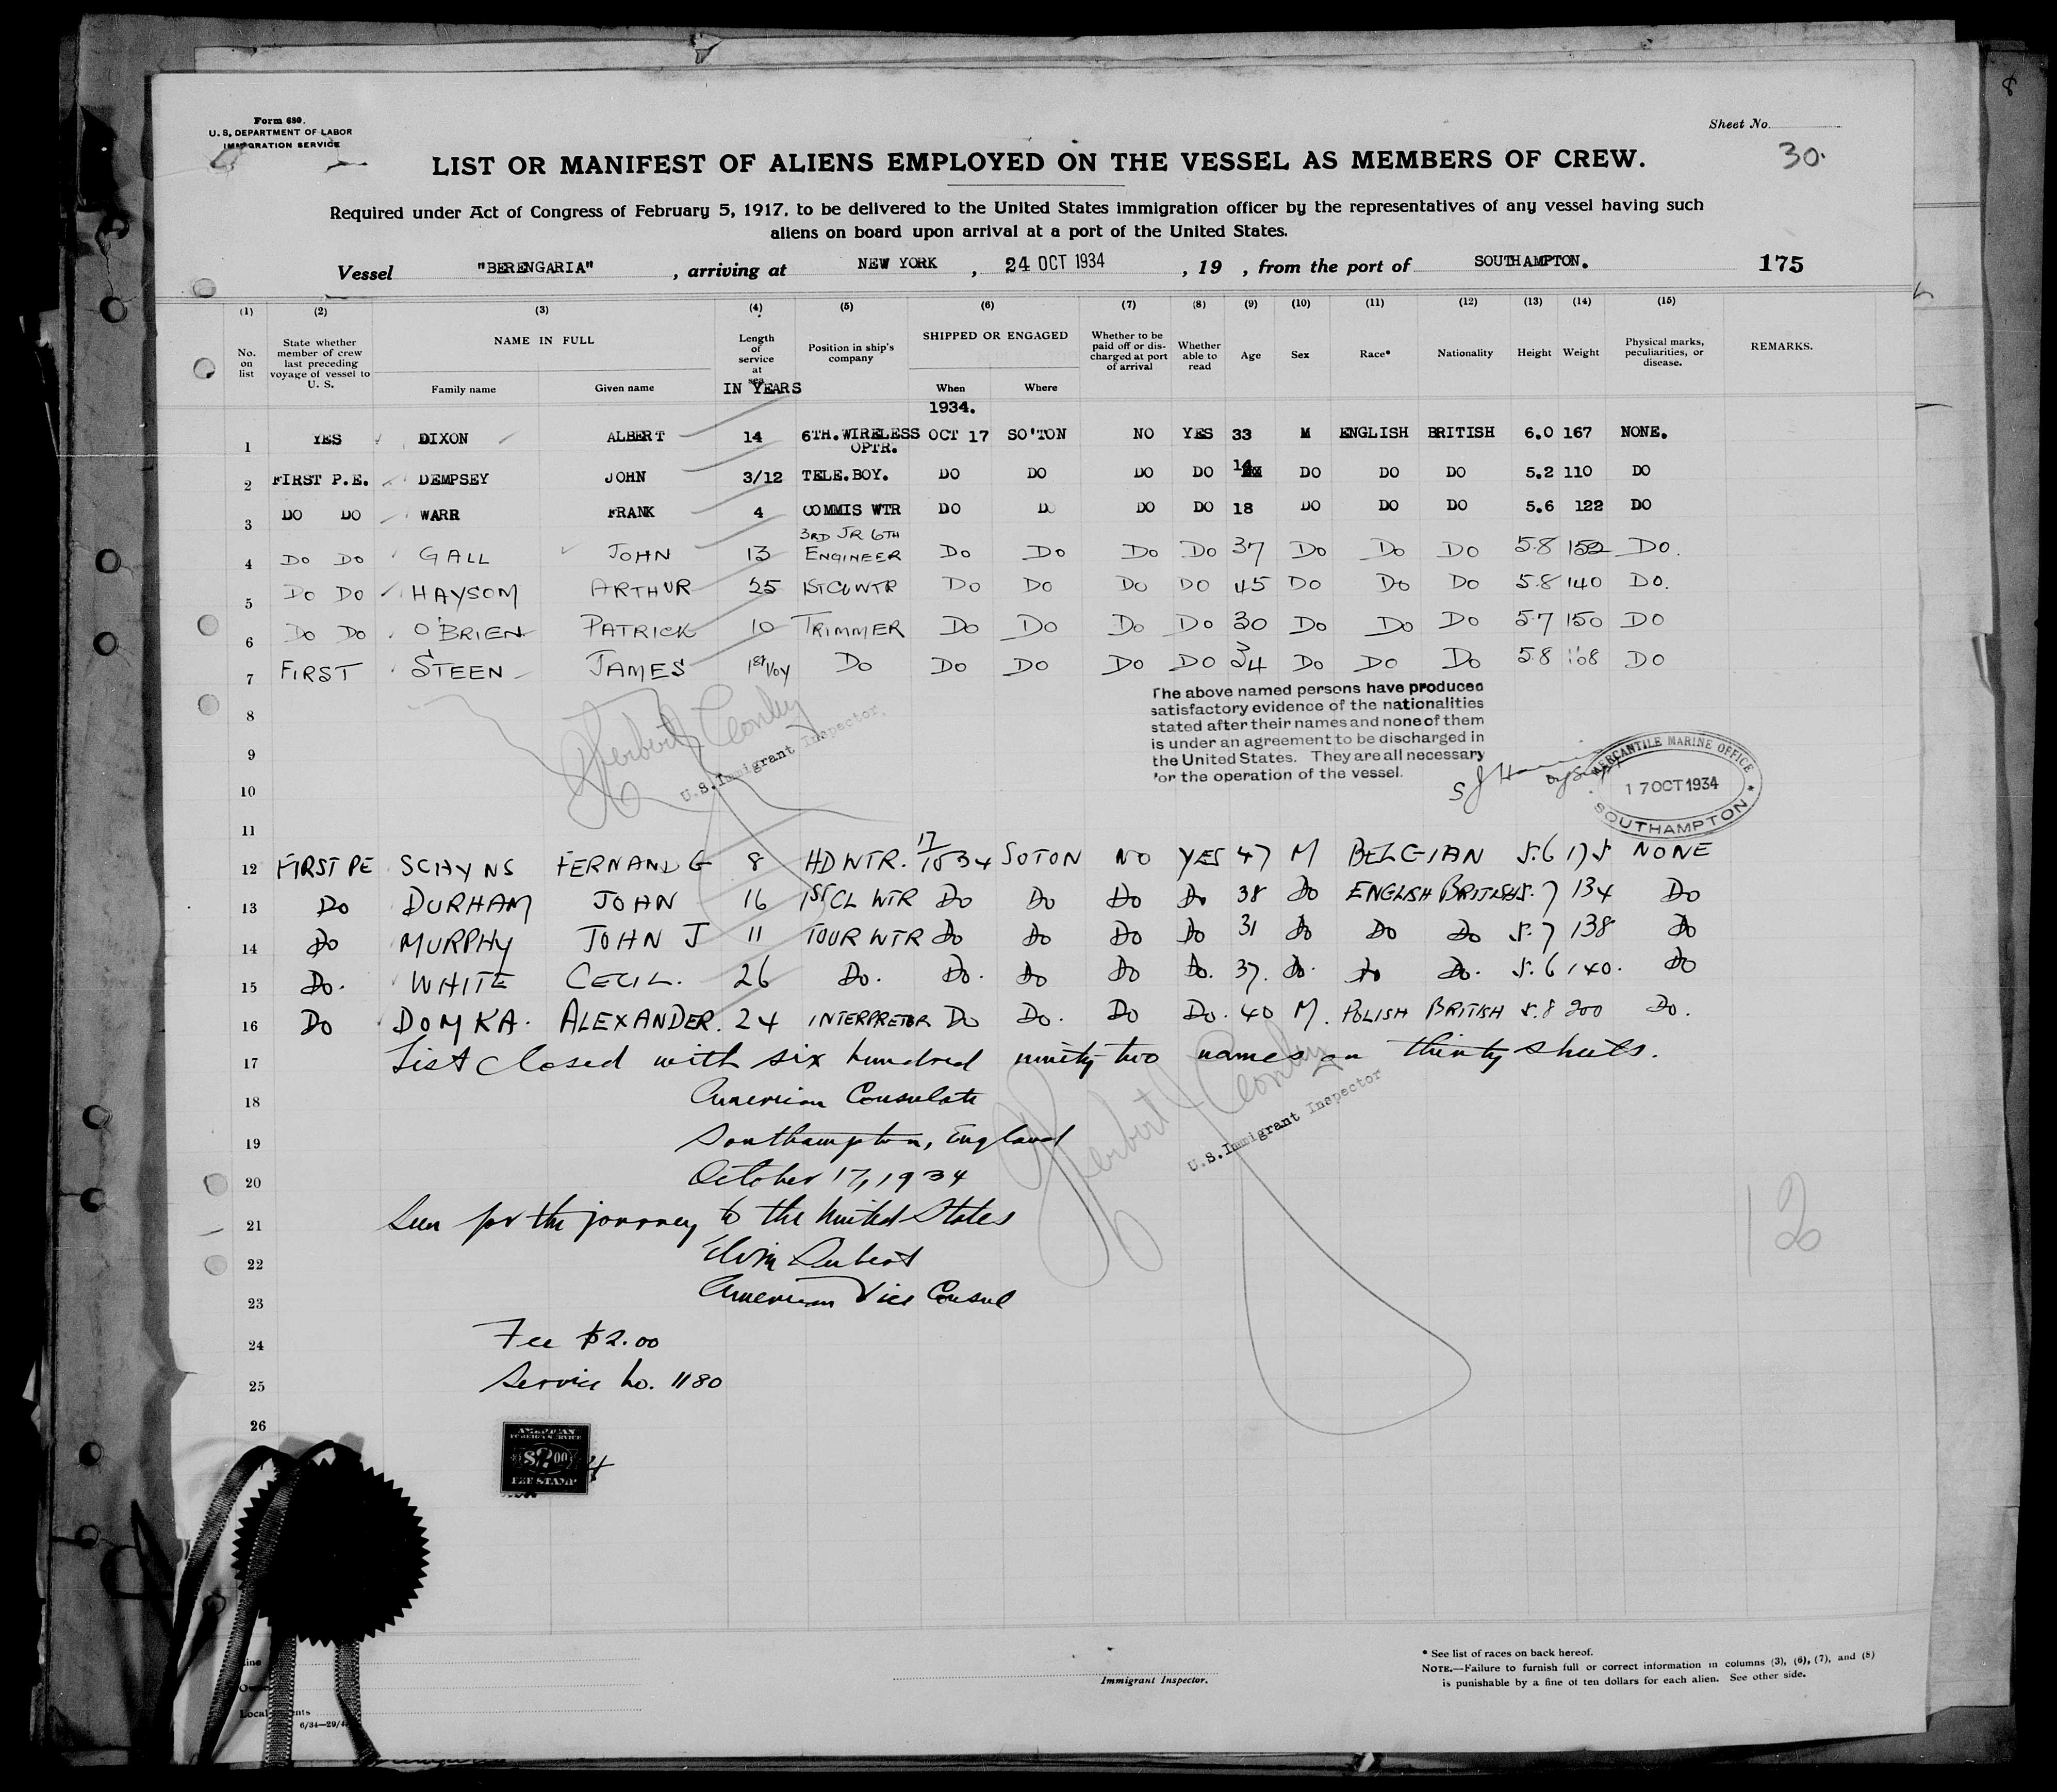 8
Form 680.
U. S. DEPARTMENT OF LABOR
IMMIGRATION SERVICE
Sheet No.
30.
LIST OR MANIFEST OF ALIENS EMPLOYED ON THE VESSEL AS MEMBERS OF CREW.
Required under Act of Congress of February 5, 1917, to be delivered to the United States immigration officer by the representatives of any vessel having such
aliens on board upon arrival at a port of the United States.
Vessel "BERENGARIA" , arriving at NEW YORK , 24 OCT 1934 , 19 , from the port of SOUTHAMPTON. 175
(1) (2) (3) (4) (5) (6) (7) (8) (9) (10) (11) (12) (13) (14) (15)
No. on list
State whether member of crew last preceding voyage of vessel to U. S.
NAME IN FULL
Family name Given name
Length of service at sea
IN YEARS
Position in ship's company
SHIPPED OR ENGAGED
When Where
1934.
Whether to be paid off or discharged at port of arrival
Whether able to read
Age Sex Race* Nationality Height Weight
Physical marks, peculiarities, or disease.
REMARKS.
1 YES DIXON ALBERT 14 6TH. WIRELESS OPTR. OCT 17 SO'TON NO YES 33 M ENGLISH BRITISH 6.0 167 NONE.
2 FIRST P.E. DEMPSEY JOHN 3/12 TELE.BOY. DO DO DO DO 14 DO DO DO 5.2 110 DO
3 DO DO WARR FRANK 4 COMMIS WTR DO DO DO DO 18 DO DO DO 5.6 122 DO
4 DO DO GALL JOHN 13 3RD JR 6TH ENGINEER DO DO DO DO 37 DO DO DO 5.8 152 DO.
5 DO DO HAYSOM ARTHUR 25 1ST CL WTR DO DO DO DO 45 DO DO DO 5.8 140 DO.
6 DO DO O'BRIEN PATRICK 10 TRIMMER DO DO DO DO 30 DO DO DO 5.7 150 DO
7 FIRST STEEN JAMES 1st VOY DO DO DO DO DO 34 DO DO DO 5.8 DO
8
9
10
11
Herbert Conby
U.S. Immigrant Inspector.
The above named persons have produced
satisfactory evidence of the nationalities
stated after their names and none of them
is under an agreement to be discharged in
the United States. They are all necessary
for the operation of the vessel.
MERCANTILE MARINE OFFICE
17 OCT 1934
SOUTHAMPTON
12 FIRST PE SCHYNS FERNAND G 8 HD WTR. 17/10 34 SOTON NO YES 47 M BELGIAN 5.6 175 NONE
13 DO DURHAM JOHN 16 1ST CL WTR DO DO DO DO 38 DO ENGLISH BRITISH 5.7 134 DO
14 DO MURPHY JOHN J 11 TOUR WTR DO DO DO DO 31 DO DO DO 5.7 138 DO
15 DO. WHITE CECIL. 26 DO. DO. DO DO DO. 37. DO. DO DO. 5.6 140. DO
16 DO DOMKA. ALEXANDER. 24 INTERPRETOR DO DO. DO DO. 40 M. POLISH BRITISH 5.8 200 DO.
17 List closed with six hundred ninety-two names on thirty sheets.
18 American Consulate
19 Southampton, England
20 October 17, 1934
21 Seen for the journey to the United States
22
23 American Vice Consul
24 Fee $2.00
25 Service No. 1180
26
Herbert Conby
U.S. Immigrant Inspector
12
AMERICAN
FOREIGN SERVICE
$2.00
FEE STAMP
Line
Owner
Local Agents
6/34
Immigrant Inspector.
* See list of races on back hereof.
NOTE.—Failure to furnish full or correct information in columns (3), (6), (7), and (8)
is punishable by a fine of ten dollars for each alien. See other side.